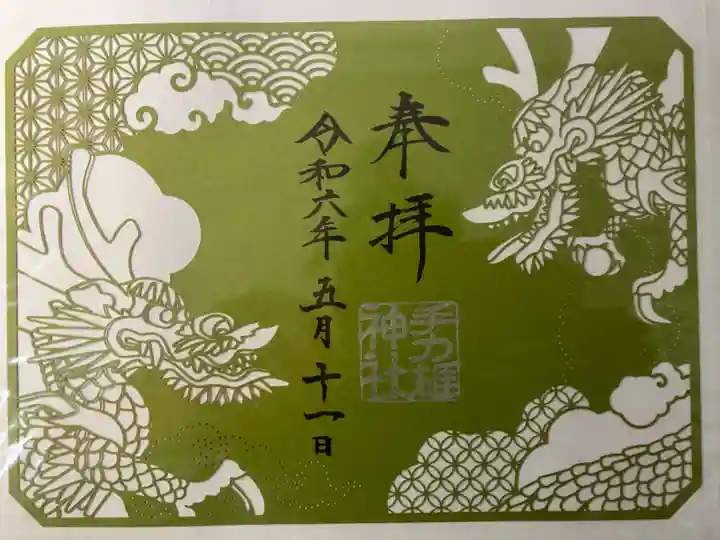 奉拝
令和六年 五月十一日
手力雄
神社